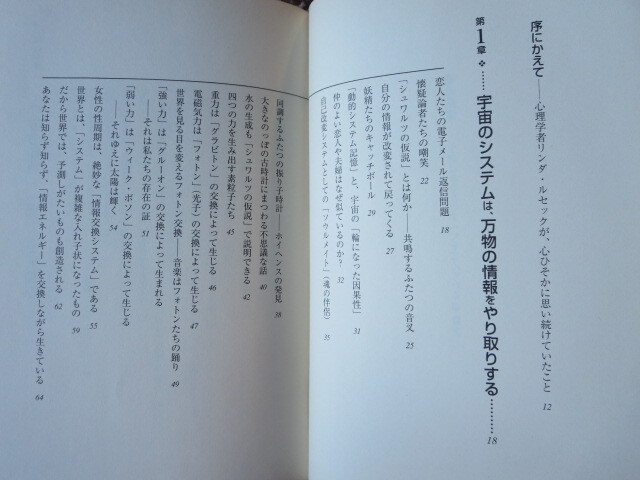 序にかえて──心理学者リンダ・ルセックが、心ひそかに思い続けていたこと 12
第1章❖……宇宙のシステムは、万物の情報をやり取りする……… 18
恋人たちの電子メール返信問題 18
懐疑論者たちの嘲笑 22
「シュワルツの仮説」とは何か──共鳴するふたつの音叉 25
自分の情報が改変されて戻ってくる 27
妖精たちのキャッチボール 29
「動的システム記憶」と、宇宙の「輪になった因果性」 31
仲のよい恋人や夫婦はなぜ似ているのか? 32
自己改変システムとしての「ソウルメイト」(魂の伴侶) 35
同調するふたつの振り子時計──ホイヘンスの発見 38
大きなのっぽの古時計にまつわる不思議な話 40
水の生成も「シュワルツの仮説」で説明できる 42
四つの力を生み出す素粒子たち 45
重力は「グラビトン」の交換によって生じる 46
電磁気力は「フォトン」(光子)の交換によって生じる 47
世界を見る目を変えるフォトン交換──音楽はフォトンたちの踊り 49
「強い力」は「グルーオン」の交換によって生まれる
──それは私たちの存在の証 51
「弱い力」は「ウィーク・ボソン」の交換によって生じる
──それゆえに太陽は輝く 54
女性の性周期は、絶妙な「情報交換システム」である 55
世界とは、「システム」が複雑な入れ子状になったもの 59
だから世界では、予測しがたいものも創造される 62
あなたは知らず知らず、「情報エネルギー」を交換しながら生きている 64